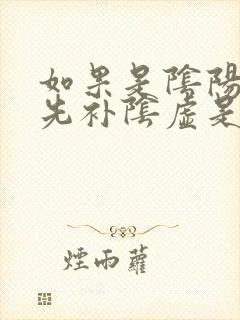 如果是陰陽
先补陰虛是
煙雨蘿